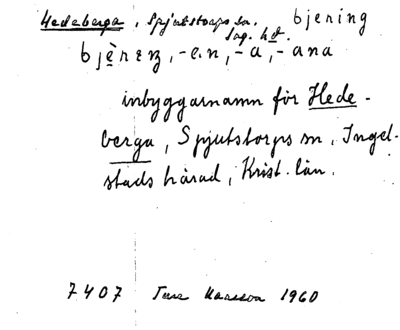 Hedeberga, Spjutstorps sn. bjering
Ing. hd.
bjèrez, -en, -a, -ana
inbyggarnamn för Hede-
berga, Spjutstorps sn, Ingel-
stads härad, Krist. län.
7407 1960